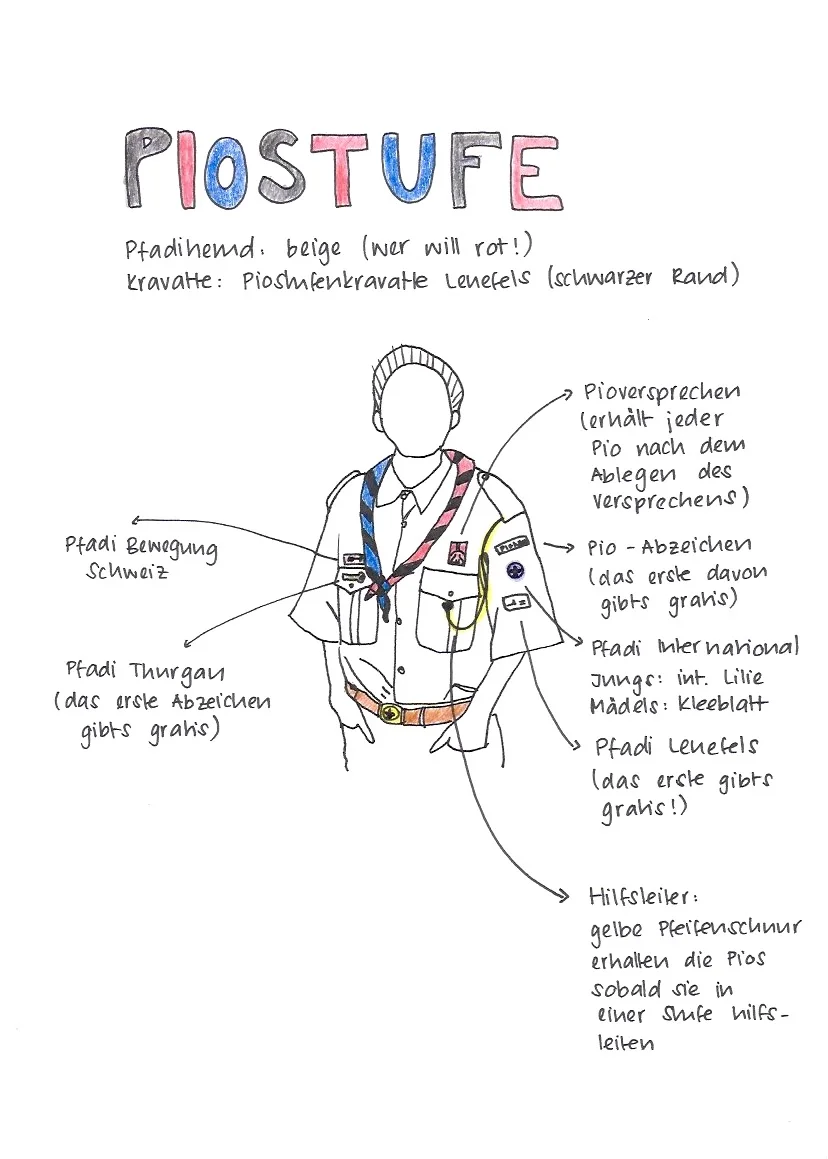 PIOSTUFE
Pfadihemd: beige (wer will rot!)
Kravatte: Piostufenkravatte Leuefels (schwarzer Rand)
Pioversprechen
(erhält jeder
Pio nach dem
Ablegen des
Versprechens)
Pfadi Bewegung
Schweiz
Pio - Abzeichen
(das erste davon
gibts gratis)
Pfadi International
Jungs: int. Lilie
Mädels: Kleeblatt
Pfadi Thurgau
(das erste Abzeichen
gibts gratis)
Pfadi Leuefels
(das erste gibts
gratis!)
Hilfsleiter:
gelbe Pfeifenschnur
erhalten die Pios
sobald sie in
einer Stufe hilfs-
leiten